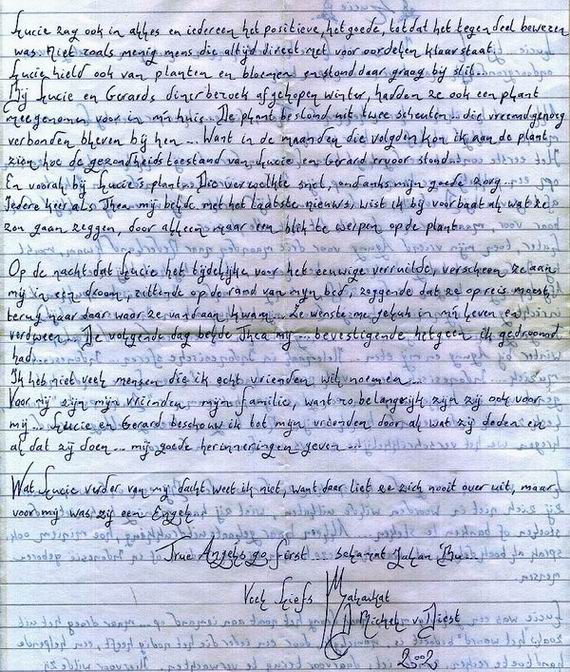 Lucie zag ook in alles en iedereen het positieve, het goede, tot dat het tegendeel bewezen
was. Niet zoals menig mens die altijd direct met voor oordelen klaar staat.
Lucie hield ook van planten en bloemen en stond daar graag bij stil...
Bij Lucie en Gerards diner bezoek afgelopen winter, hadden ze ook een plant
meegenomen voor in m'n huis. De plant bestond uit twee scheuten... die vreemd genoeg
verbonden bleven bij hen... Want in de maanden die volgden kon ik aan de plant
zien hoe de gezondheidstoestand van Lucie en Gerard ervoor stond...
En vooral bij Lucie's plant. Die verwelkte snel, ondanks mijn goede zorg...
Iedere keer als Thea mij belde met het laatste nieuws, wist ik bij voorbaat al wat ze
zou gaan zeggen, door alleen maar een blik te werpen op de plant...
Op de nacht dat Lucie het tijdelijke voor het eeuwige verruilde, verscheen ze aan
mij in een droom, zittende op de rand van mijn bed, zeggende dat ze op reis moest
terug naar daar waar ze vandaan kwam... Ze wenste me geluk in m'n leven en
verdween... De volgende dag belde Thea mij... bevestigende hetgeen ik gedroomd
had...
Ik heb niet veel mensen die ik echt vrienden wil noemen...
Voor mij zijn mijn vrienden mijn familie, want zo belangrijk zijn zij ook voor
mij... Lucie en Gerard beschouw ik tot mijn vrienden door al wat zij deden en
al dat zij doen... mij goede herinneringen geven...
Wat Lucie verder van mij dacht weet ik niet, want daar liet ze zich nooit over uit, maar
voor mij was zij een Engel.
True Angels go first
Veel liefs
Michel v. Diest
2002